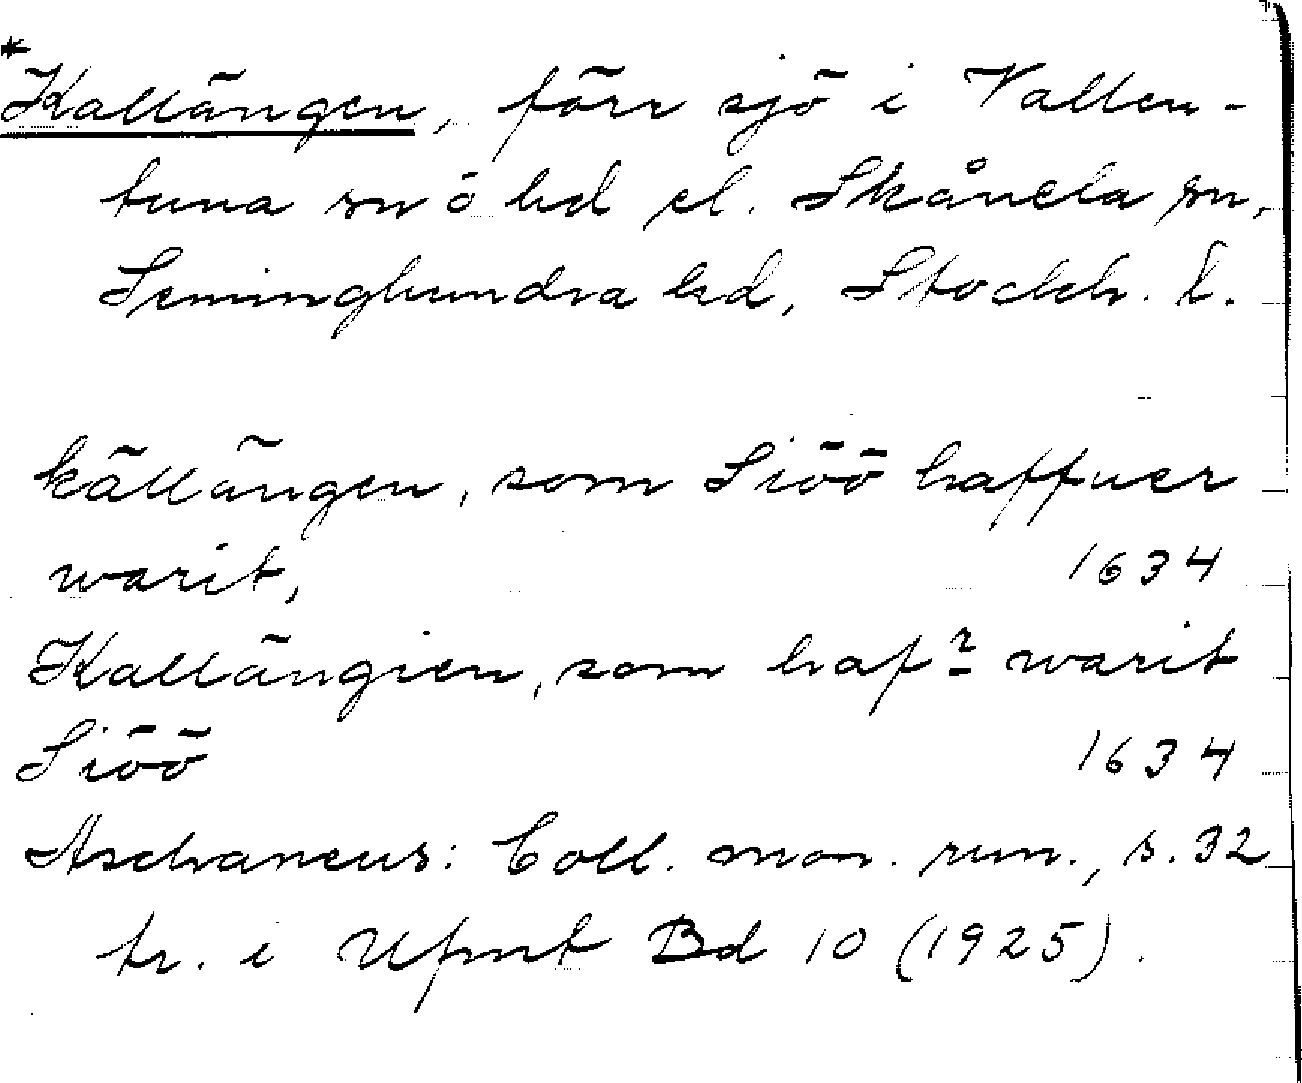 *Kallängen, förr sjö i Vallen-
tuna sn o hd el. Skånela sn,
Seminghundra hd, Stockh. l.
källängen, som Siöö haffuer
warit, 1634
Kallängien, som haf? warit
Siöö 1634
Aschaneus: Coll. mon. run., s. 32
tr. i Ufmt Bd 10 (1925).